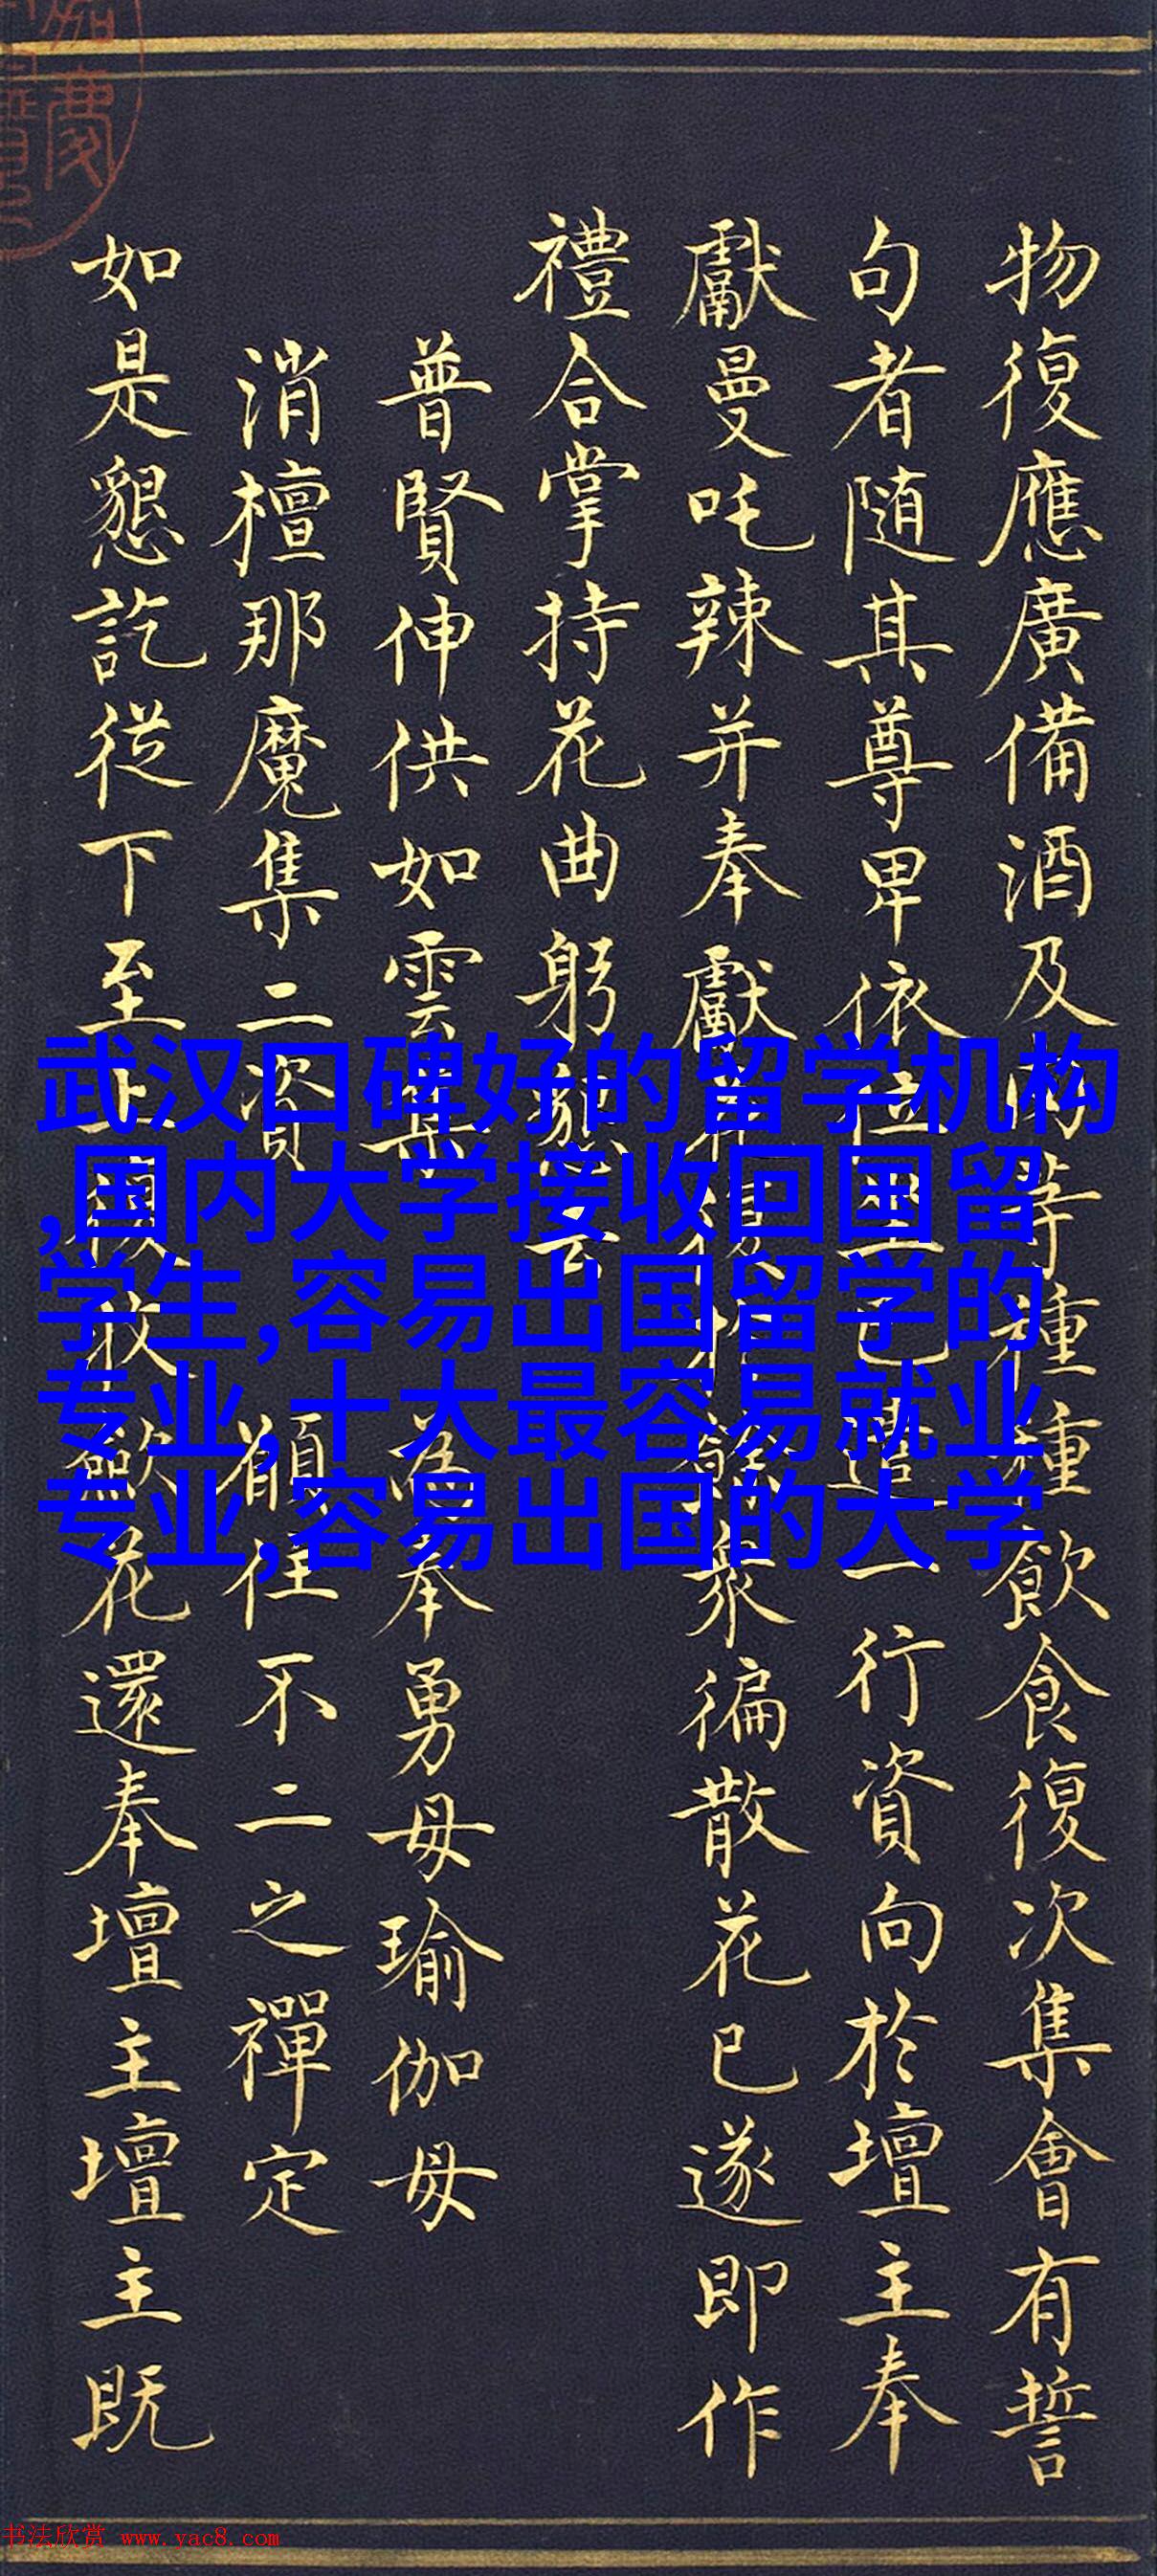 物復應廣備酒及肉等種種飲食復次集會有誓
句者随其尊卑依位已一行資向於壇主奉
獻曼吒辣并奉獻衆徧散花已遂即作
禮合掌持花曲躬云
普賢伸供如雲集 為奉勇母瑜伽母
消檀那魔集二資 願住不二之禪定
如是懇訖從下至花還奉壇主壇主既
武汉口碑好的留学机构
,国内大学接收回国留
学生,容易出国留学的
专业,十大最容易就业
专业,容易出国的大学
书法欣赏 www.yac8.com